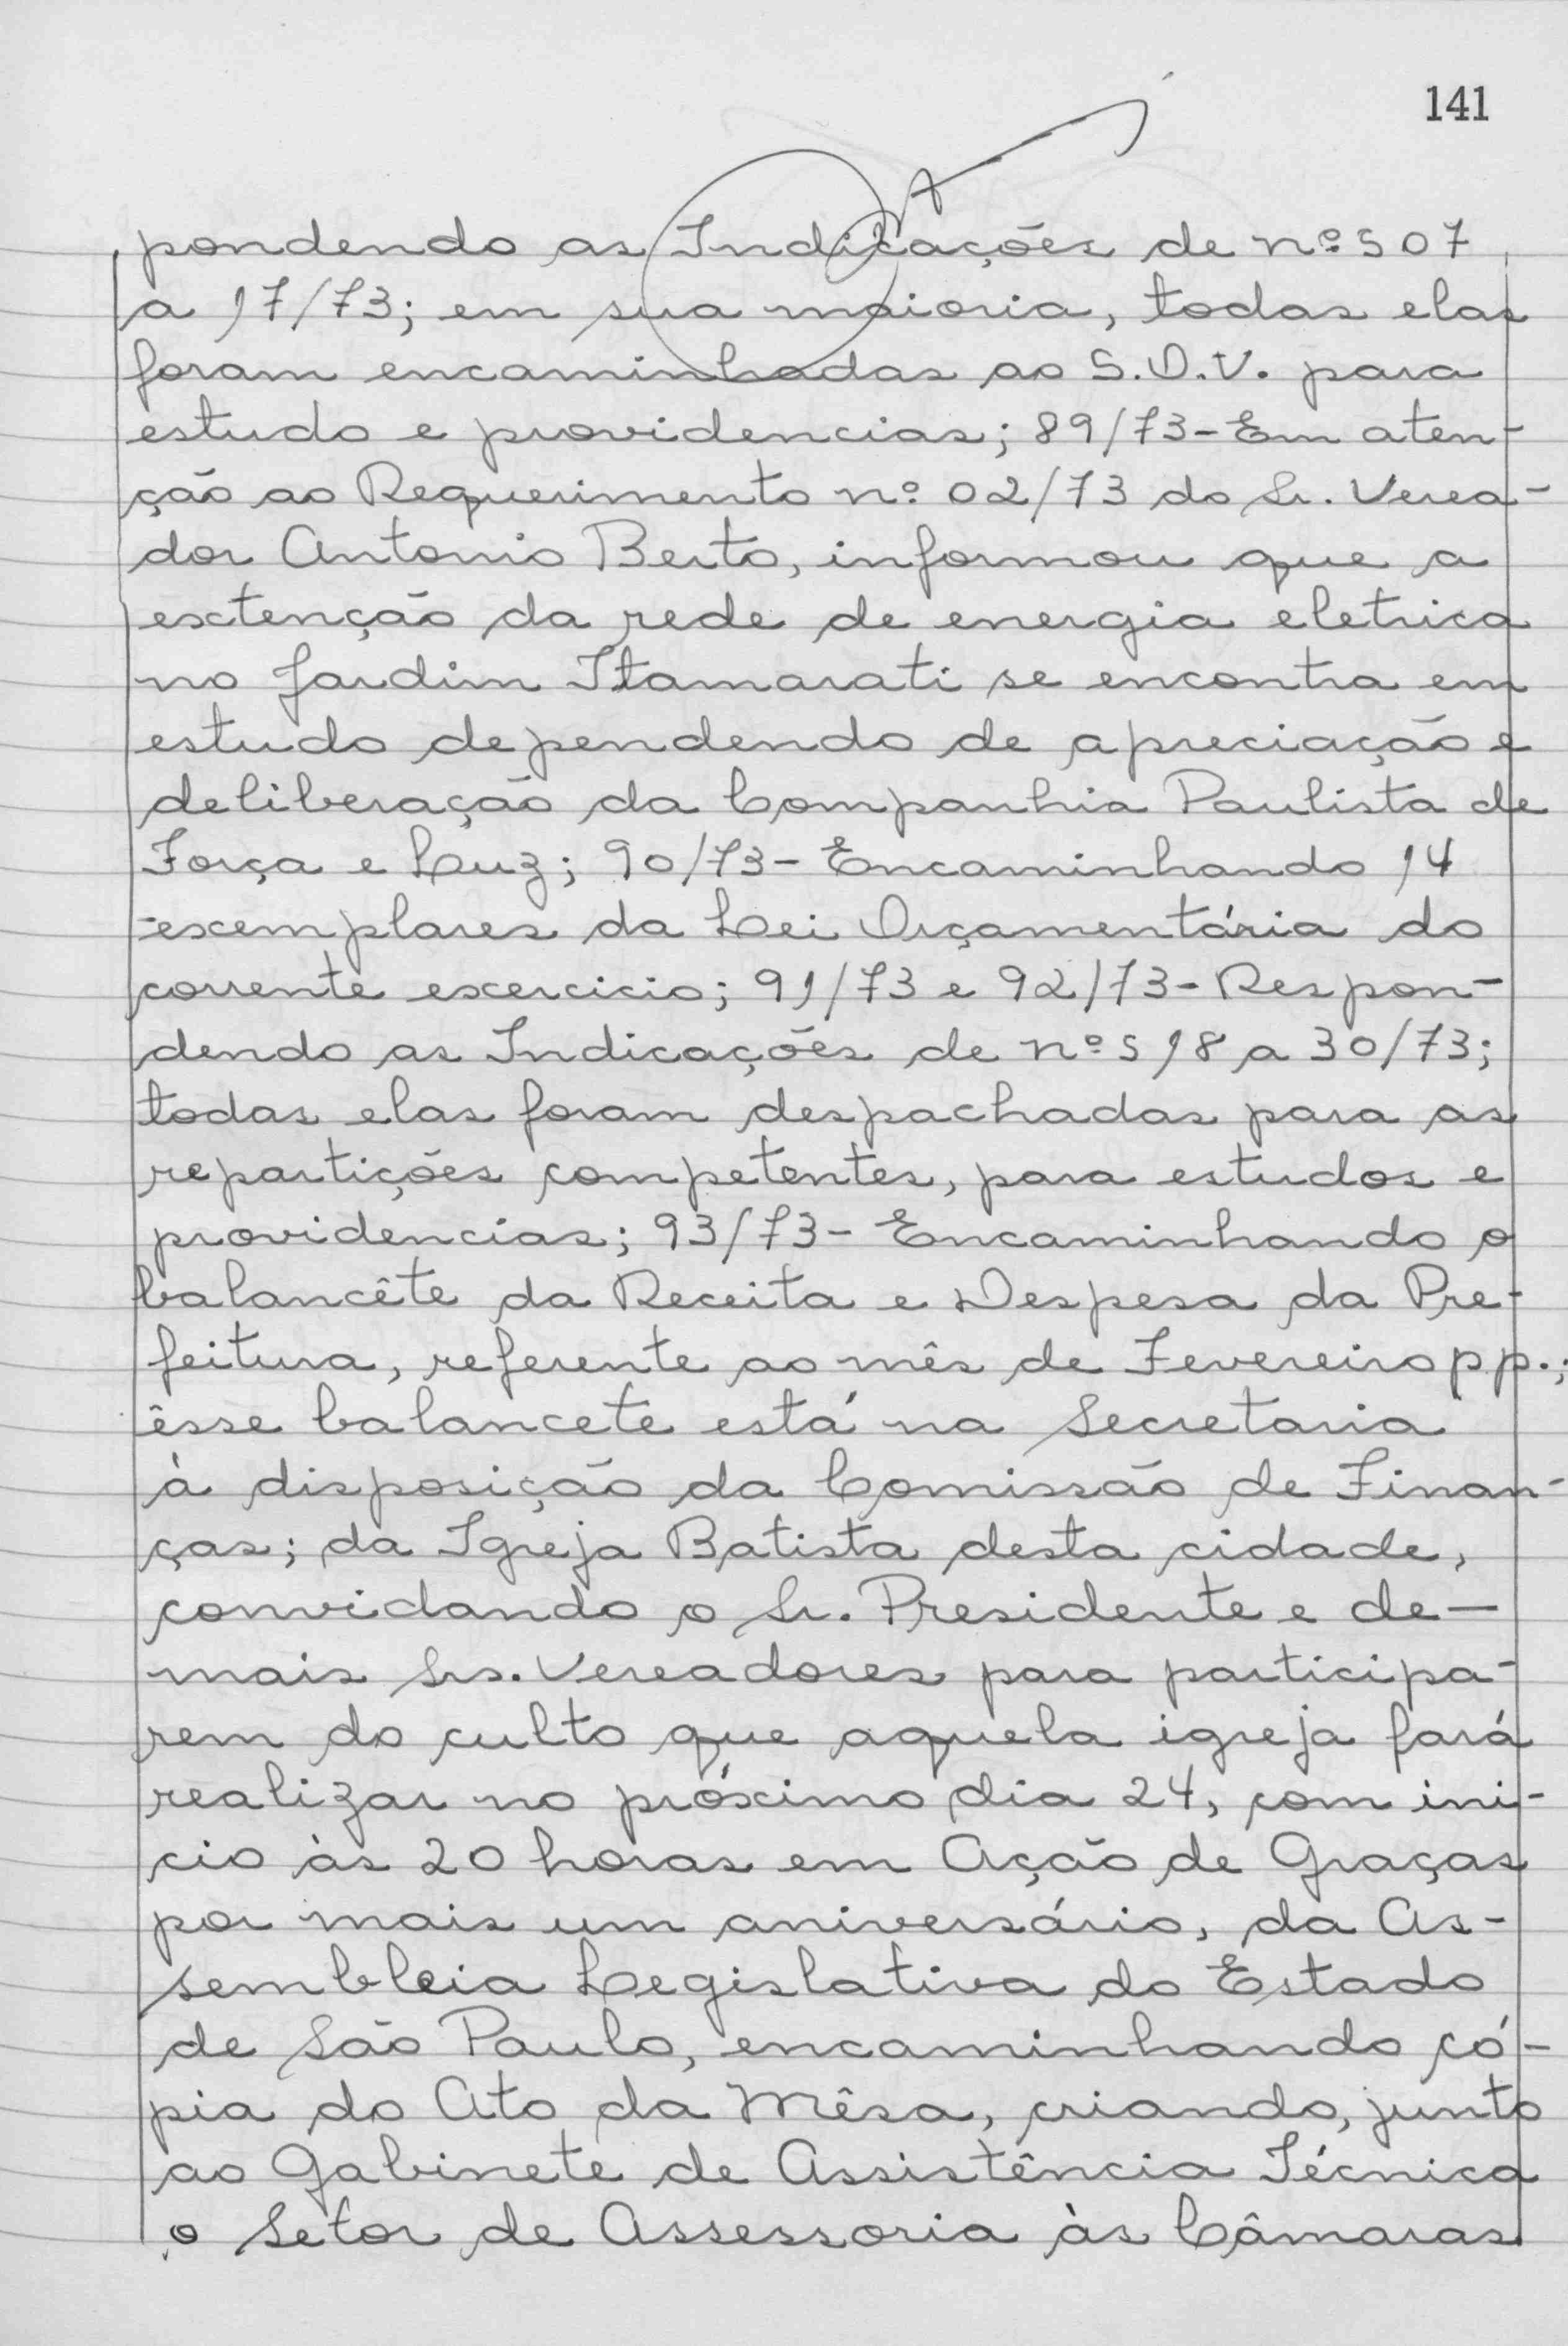 141
pondendo as Indicações de nºs 07
a 17/73; em sua maioria, todas elas
foram encaminhadas ao S.O.V. para
estudo e providencias; 89/73 - Em aten-
ção ao Requerimento nº 02/73 do Sr. Verea-
dor Antonio Berto, informou que a
extenção da rede de energia eletrica
no Jardim Itamarati se encontra em
estudo dependendo de apreciação e
deliberação da Companhia Paulista de
Força e Luz; 90/73 - Encaminhando 14
exemplares da Lei Orçamentária do
corrente exercicio; 91/73 e 92/73 - Respon-
dendo as Indicações de nºs 18 a 30/73;
todas elas foram despachadas para as
repartições competentes, para estudos e
providencias; 93/73 - Encaminhando o
balancête da Receita e Despesa da Pre-
feitura, referente ao mês de Fevereiro p.p.;
êsse balancete está na Secretaria
à disposição da Comissão de Finan-
ças; da Igreja Batista desta cidade,
convidando o Sr. Presidente e de-
mais Srs. Vereadores para participa-
rem do culto que aquela igreja fará
realizar no próximo dia 24, com ini-
cio às 20 horas em Ação de Graças
por mais um aniversário, da As-
sembleia Legislativa do Estado
de São Paulo, encaminhando có-
pia do Ato da Mêsa, criando, junto
ao Gabinete de Assistência Técnica
o Setor de Assessoria às Câmaras